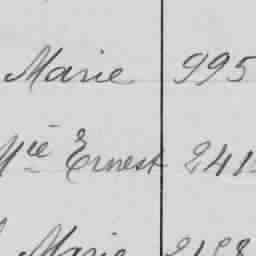 Marie 995
Mie Ernest 241
Marie